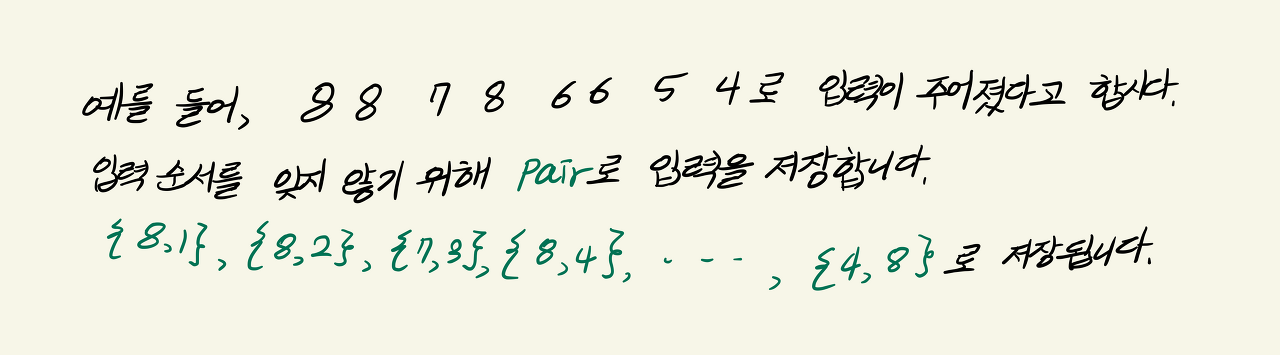 예를 들어, 8 8 7 8 6 6 5 4로 입력이 주어졌다고 합시다.
입력 순서를 잊지 않기 위해 pair로 입력을 저장합니다.
{8,1}, {8,2}, {7,3}, {8,4}, ・---, {4,8}로 저장됩니다.